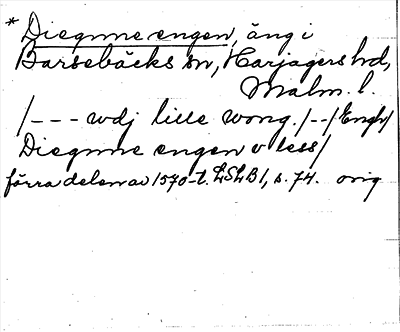 * Diegnne engen, äng i
Barsebäcks sn, Harjagers hd,
Malm. l.
/--- wdj lille wong. /--/ Engh/
Diegnne engen v less/
förra delen av 1570-t. LSLB1, s. 74. orig